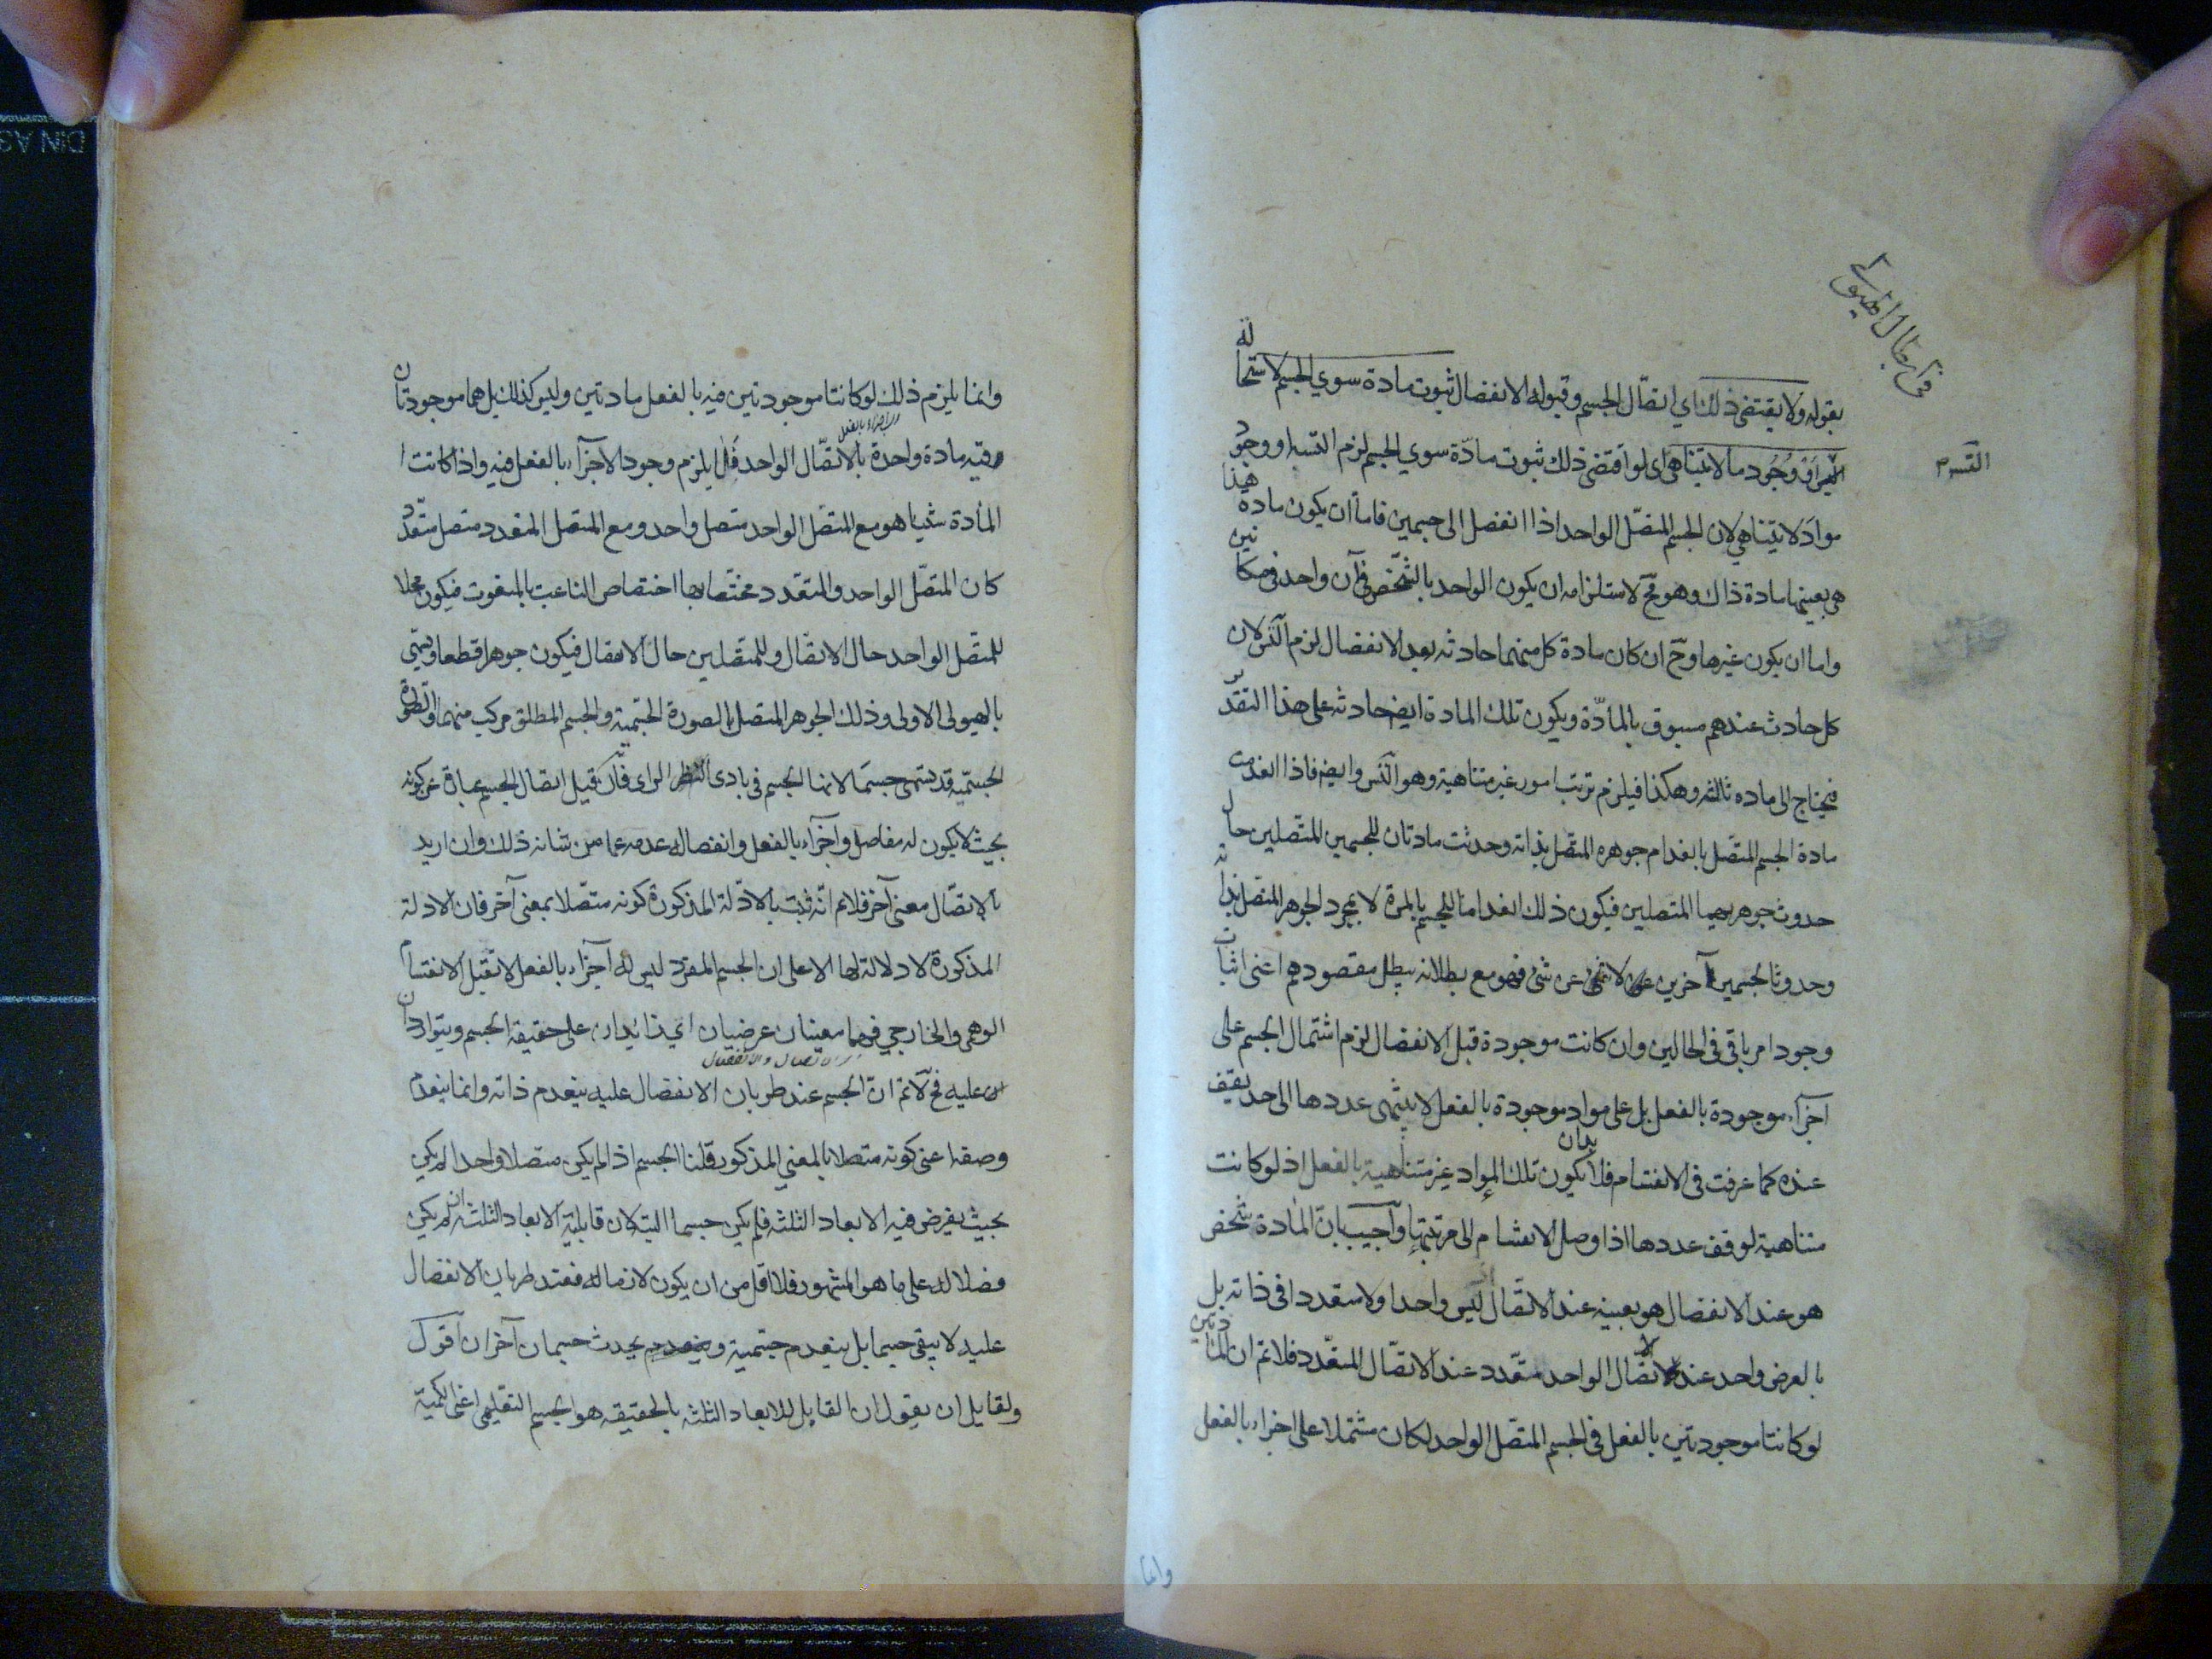 في ابطال الهيولى
بقوله ولا يقتضي ذلك اي اتصال الجسم وقبوله الانفصال ثبوت مادة سوي الجسم لاستحالة
التسم
وجود ما لا يتناهى اى لو اقتضى ذلك ثبوت مادّة سوي الجسم لزم التسم او وجود
مواد لا يتناهي لان الجسم المتصل الواحد اذا انفصل الى جسمين فاما ان يكون مادة هذا
هي بعينها مادة ذاك وهو مح لاستلزامه ان يكون الواحد بالشخص في آن واحد في مكانين
واما ان يكون غيرها وح ان كان مادة كل منهما حادثه بعد الانفصال لزم التس لان
كل حادث عندهم مسبوق بالمادّة ويكون تلك المادة ايضا حادثه على هذا التقدير
فيحتاج الى ماده ثالثه وهكذا فيلزم ترتب امور غير متناهية وهو التس وايض فاذا انعدمت
مادة الجسم المتصل بانعدام جوهره المتصل بذاته وحدثت مادتان للجسمين المتصلين حال
حدوث جوهريهما المتصلين فيكون ذلك انعداما للجسم بالمرة لا بمجرد الجوهر المتصل بذاته
وحدوثا لجسمين آخرين عن لا شئ فهو مع بطلانه يبطل مقصودهم اعنى اثبات
وجود امر باقى في الحالين وان كانت موجودة قبل الانفصال لزم اشتمال الجسم على
اجزآء موجودة بالفعل بل على مواد موجودة بالفعل لا ينتهى عددها الى حد يقف
عنده كما عرفت في الانقسام فلا بد ان يكون تلك المواد غير متناهية بالفعل اذ لو كانت
متناهية لوقف عددها اذا وصل الانقسام الى مرتبتها وآجيب بان المادة شخص
هو عند الانفصال هو بعينه عند الاتصال ليس واحدا ولا متعددا في ذاته بل
بالعرض واحد عند الاتصال الواحد متعدد عند الاتصال المتعدد فلا نم ان المادتين
لو كانتا موجودتين بالفعل في الجسم المتصل الواحد لكان مشتملا على اجزاء بالفعل
وانما
وانما يلزم ذلك لو كانتا موجودتين فيه بالفعل مادتين وليس كذلك بل هما موجودتان
فيه مادة واحدة بالاتصال الواحد فلا يلزم وجود الاجزآء بالفعل فيه واذا كانت
المادة شيا هو مع المتصل الواحد متصل واحد ومع المتصل المتعدد متصل متعدد
كان المتصل الواحد والمتعدد مختصا بها اختصاص الناعت بالمنعوت فيكون محلا
للمتصل الواحد حال الاتصال وللمتصلين حال الانفصال فيكون جوهرا قطعا ويسمى
بالهيولى الاولى وذلك الجوهر المتصل بالصورة الجسمية والجسم المطلق مركب منهما والصورة
الجسمية قد تسمى جسما لانها الجسم في بادى الراى فان قيل اتصال الجسم عبارة عن كونه
بحيث لا يكون له مفاصل واجزآء بالفعل وانفصاله عدمه عما من شانه ذلك وان اريد
بالاتصال معنى آخر فلا نم انه ثبت بالادلة المذكورة كونه متصلا بمعنى آخر فان الادلة
المذكورة لا دلالة لها الا على ان الجسم المفرد ليس له اجزاء بالفعل لا تقبل الانقسام
الوهمى والخارجي فهما معنيان عرضيان اي زايدان على حقيقة الجسم ويتواردان
اى الاتصال والانفصال
عليه فح لا نم ان الجسم عند طريان الانفصال عليه ينعدم ذاته وانما ينعدم
وصفه اعنى كونه متصلا بالمعنى المذكور قلنا الجسم اذا لم يكن متصلا واحدا لم يكن
بحيث يفرض فيه الابعاد الثلثه فلم يكن جسما البته لان قابلية الابعاد الثلثه ان لم يكن
فصلا له على ما هو المشهور فلا اقل من ان يكون لازما له فعند طريان الانفصال
عليه لا يبقى جسما بل ينعدم جسمية ويحدث جسمان آخران اقول
ولقايل ان يقول ان القابل للابعاد الثلثه بالحقيقه هو الجسم التعليمى اعنى الكمية